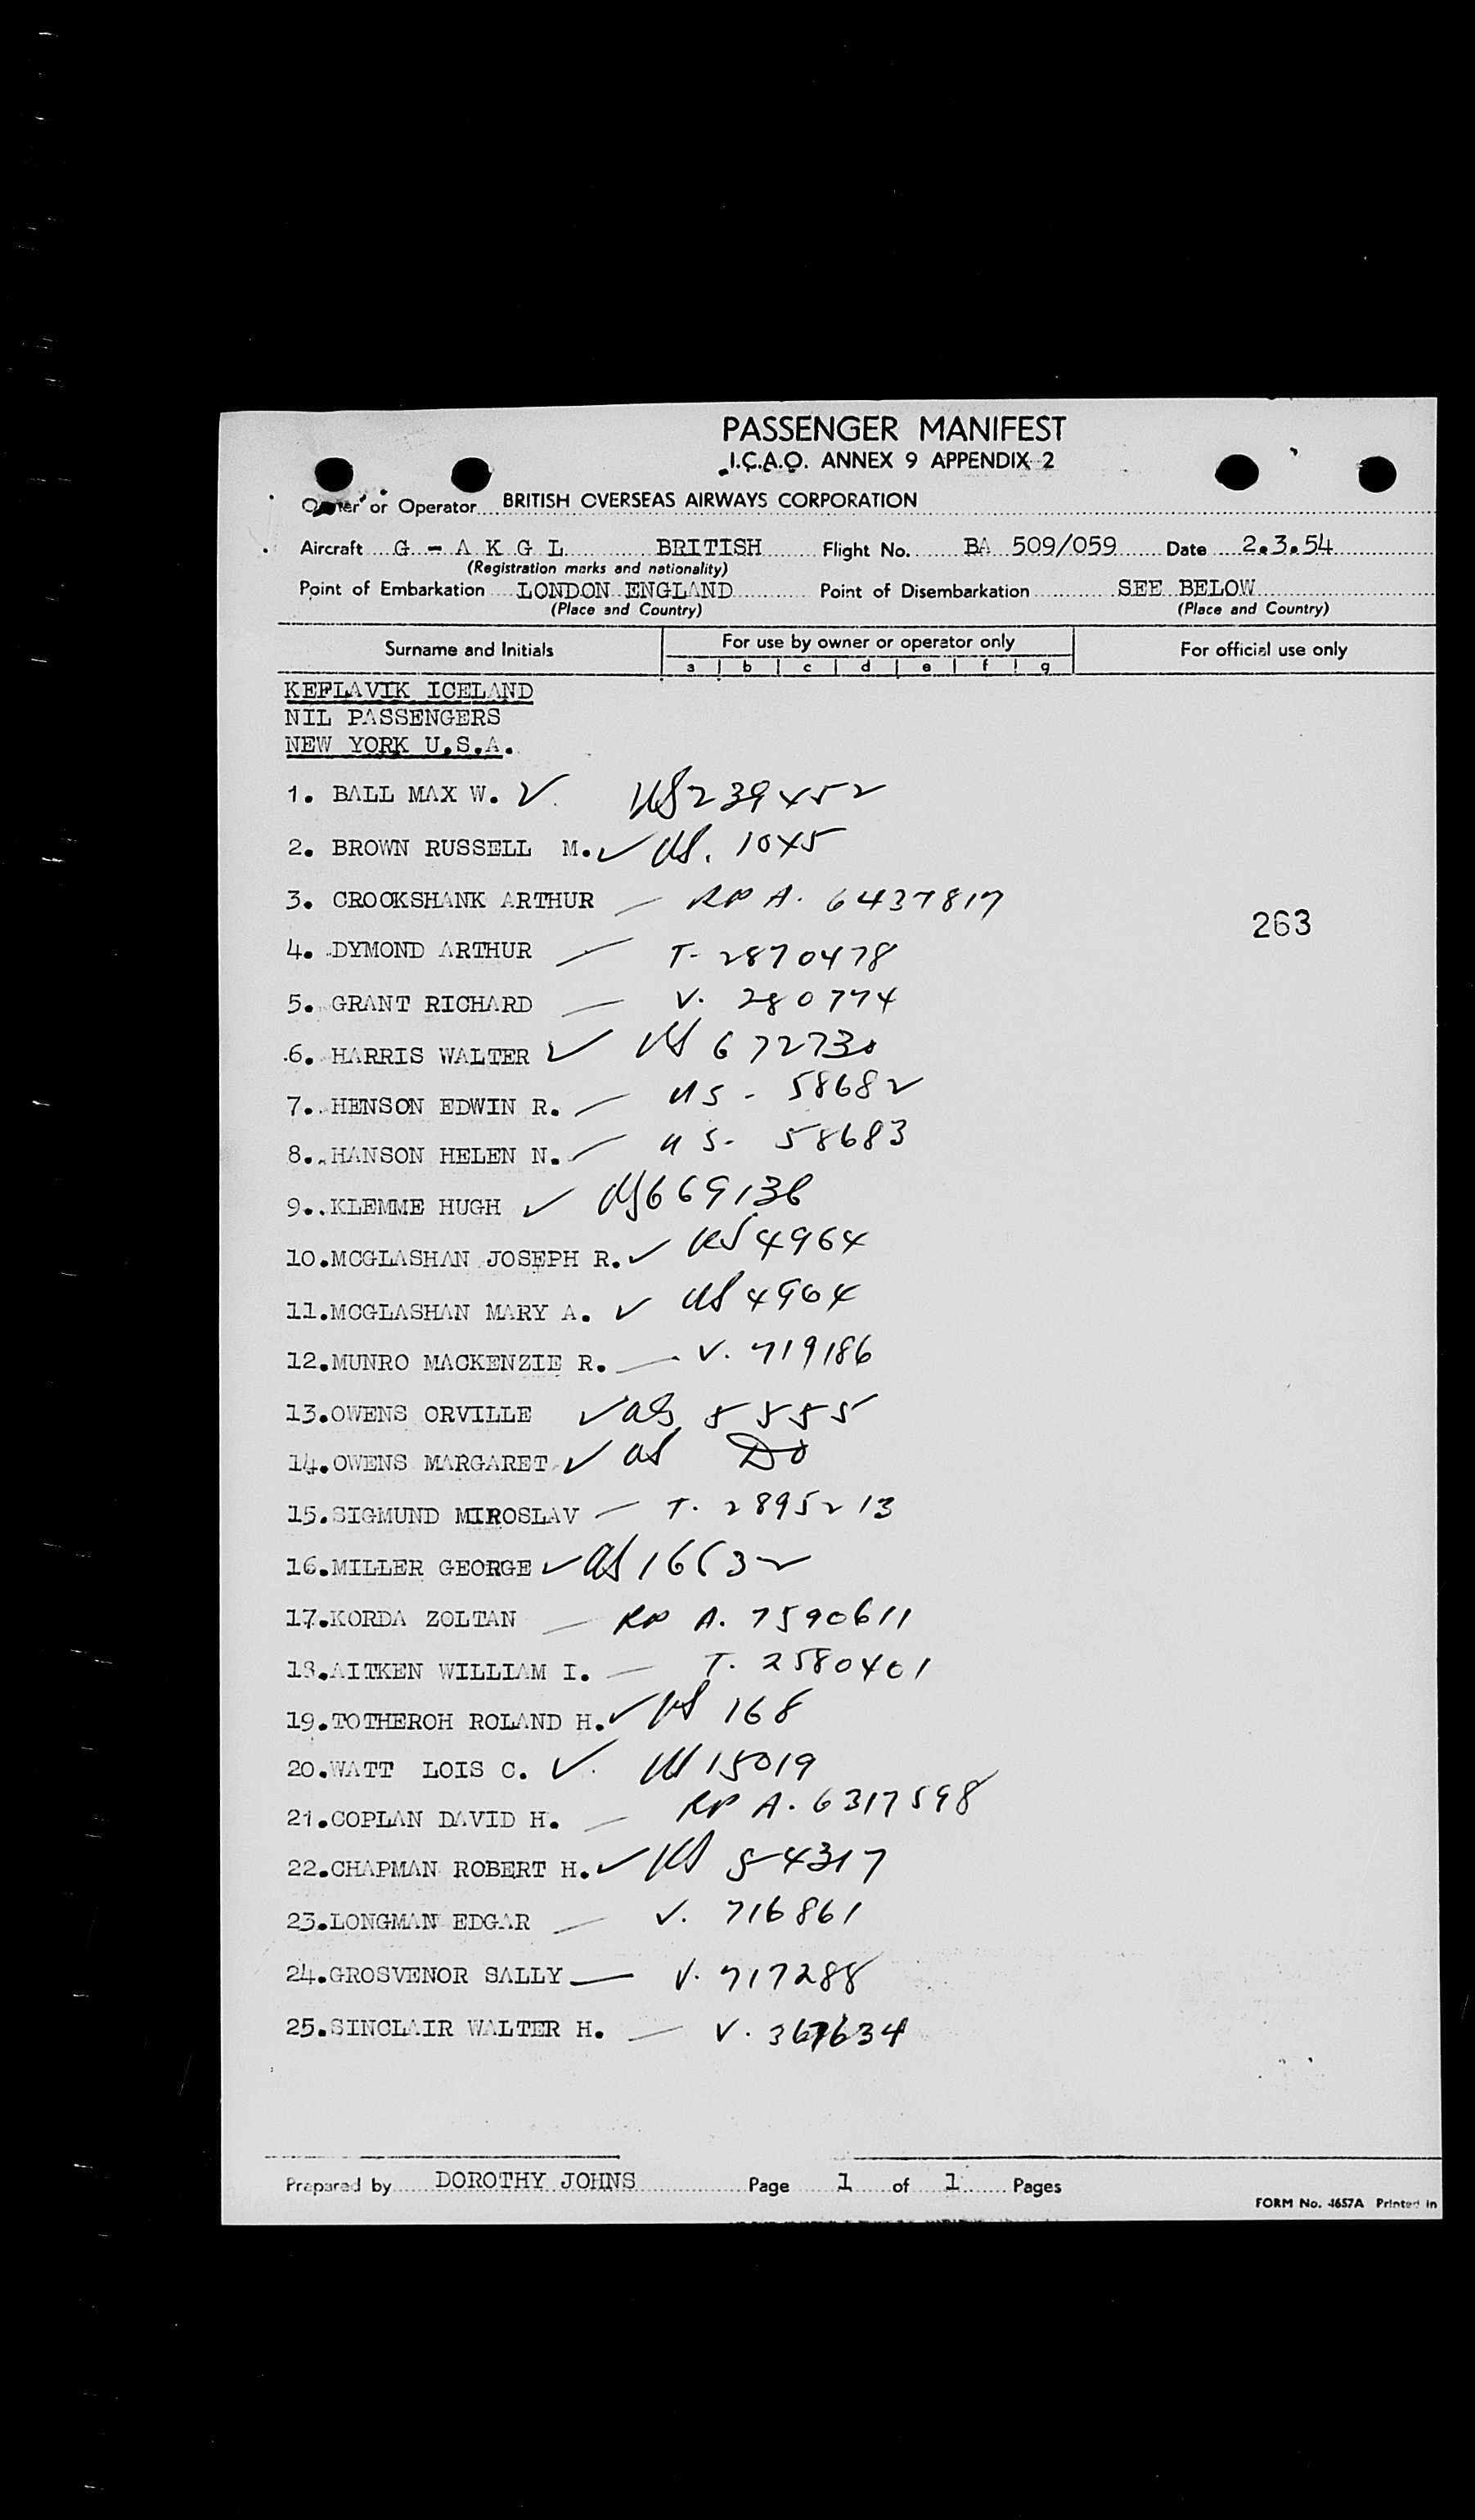 PASSENGER MANIFEST
I.C.A.O. ANNEX 9 APPENDIX 2
Owner or Operator BRITISH OVERSEAS AIRWAYS CORPORATION
Aircraft G - A K G L BRITISH Flight No. BA 509/059 Date 2.3.54
(Registration marks and nationality)
Point of Embarkation LONDON ENGLAND Point of Disembarkation SEE BELOW
(Place and Country) (Place and Country)
Surname and Initials For use by owner or operator only For official use only
a b c d e f g
KEFLAVIK ICELAND
NIL PASSENGERS
NEW YORK U.S.A.
1. BALL MAX W. ✓ US 239452
2. BROWN RUSSELL M. ✓ US. 1045
3. CROOKSHANK ARTHUR — RP A. 6437817
263
4. DYMOND ARTHUR — T- 2870478
5. GRANT RICHARD — V. 280774
6. HARRIS WALTER ✓ US 672730
7. HENSON EDWIN R. — US - 58682
8. HANSON HELEN N. — US- 58683
9. KLEMME HUGH ✓ US 669136
10. MCGLASHAN JOSEPH R. ✓ US 4964
11. MCGLASHAN MARY A. ✓ US 4964
12. MUNRO MACKENZIE R. — V. 719186
13. OWENS ORVILLE ✓ US 5555
14. OWENS MARGARET ✓ US Do
15. SIGMUND MIROSLAV — T. 2895213
16. MILLER GEORGE ✓ US
17. KORDA ZOLTAN — RP A. 7590611
18. AITKEN WILLIAM I. — T. 2580401
19. TOTHEROH ROLAND H. ✓ US 168
20. WATT LOIS C. ✓ US 15019
21. COPLAN DAVID H. — RP A. 6317598
22. CHAPMAN ROBERT H. ✓ US 54317
23. LONGMAN EDGAR — V. 716861
24. GROSVENOR SALLY — V. 717288
25. SINCLAIR WALTER H. — V. 367634
Prepared by DOROTHY JOHNS Page 1 of 1 Pages
FORM No. 4657A Printed in